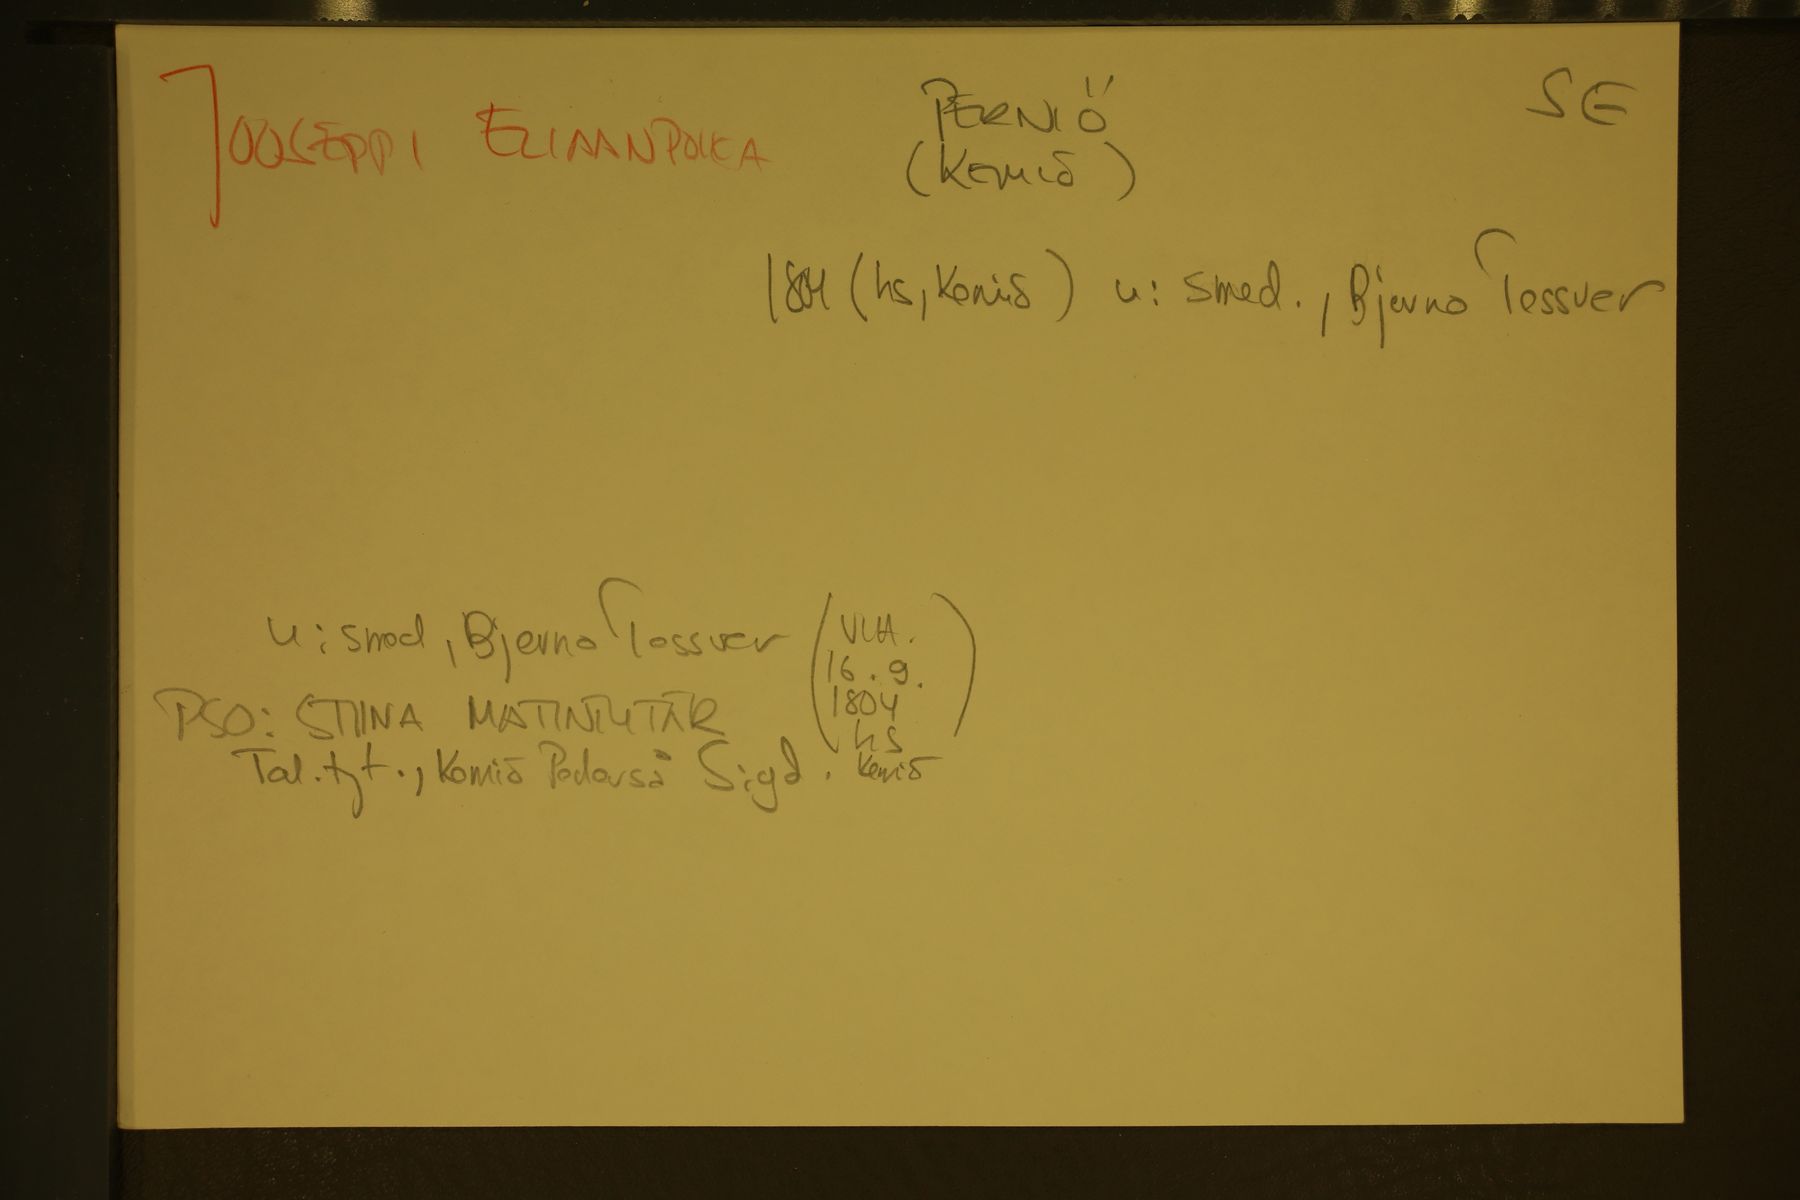 JOOSEPPI ELIAANPOIKA PERNIÖ SE
(KEMIÖ)
1804 (hs, Kemiö) u: smed., Bjerno Tessver
u: smed, Bjerno Tessver (VLA.
16.9.
1804
hs
Kemiö)
PSO: STIINA MATINTYTÄR
Tal. tyt., Kemiö Pedarså Sigd.